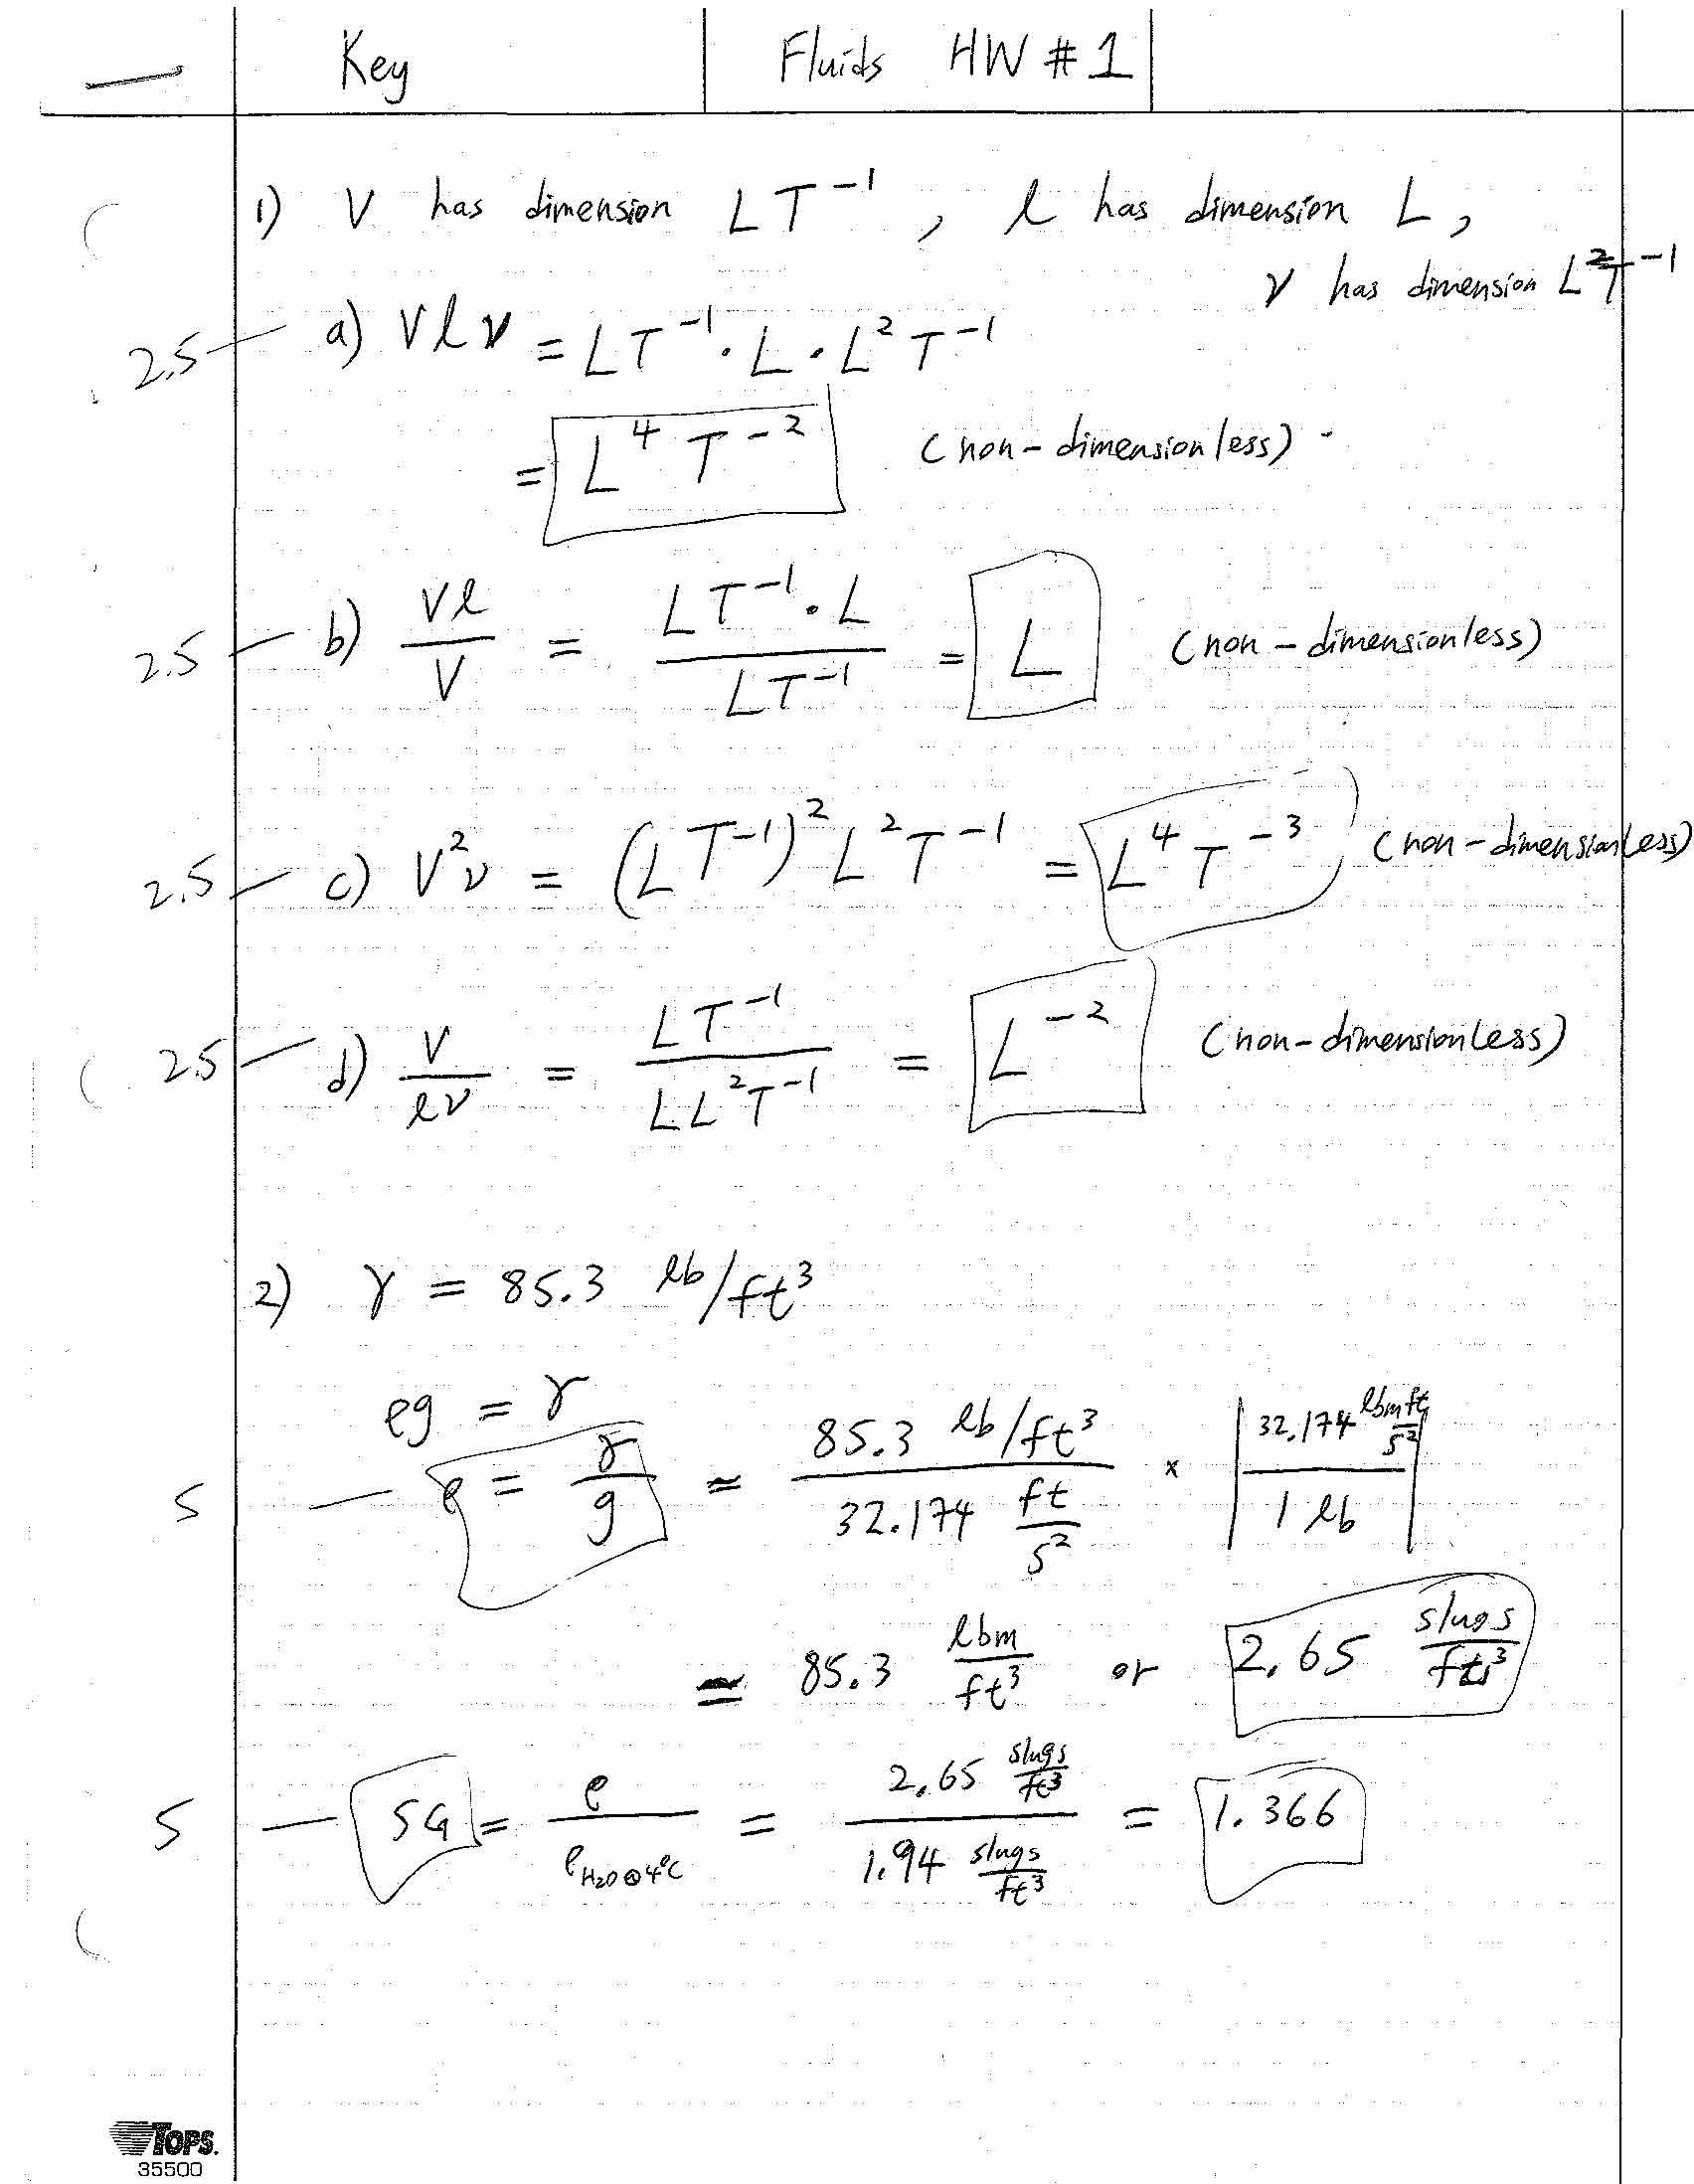 Key Fluids HW #1
1) V has dimension LT⁻¹, ℓ has dimension L,
ν has dimension L²T⁻¹
2.5 — a) Vℓν = LT⁻¹ · L · L²T⁻¹
= L⁴T⁻² (non-dimensionless)
2.5 — b) Vℓ/V = LT⁻¹·L / LT⁻¹ = L (non-dimensionless)
2.5 — c) V²ν = (LT⁻¹)² L²T⁻¹ = L⁴T⁻³ (non-dimensionless)
2.5 — d) V/ℓν = LT⁻¹ / LL²T⁻¹ = L⁻² (non-dimensionless)
2) γ = 85.3 lb/ft³
ρg = γ
5 — ρ = γ/g ≃ 85.3 lb/ft³ / 32.174 ft/s² × | 32.174 lbm ft/s² / 1 lb |
≃ 85.3 lbm/ft³ or 2.65 slugs/ft³
5 — SG = ρ/ρH₂O@4°C = 2.65 slugs/ft³ / 1.94 slugs/ft³ = 1.366
TOPS.
35500